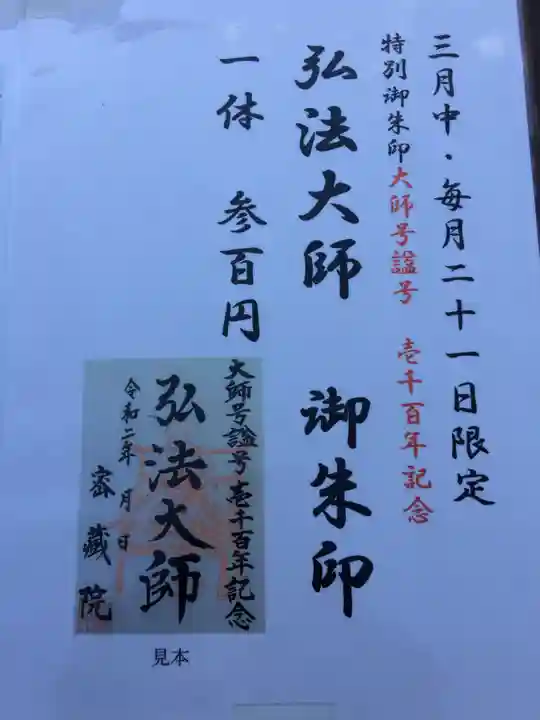 三月中・毎月二十一日限定
特別御朱印大師号諡号 壱千百年記念
弘法大師 御朱印
一体 参百円
大師号諡号壱千百年記念
弘法大師
令和二年 月 日
密蔵院
見本